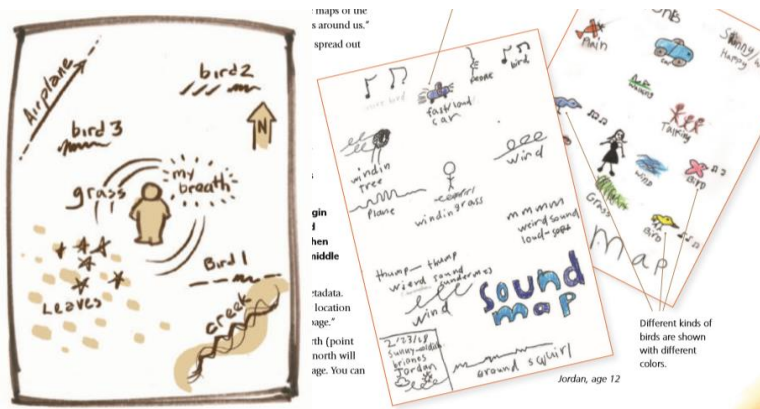 Airplane
bird2
N
bird3
grass
my
breath
Bird1
Leaves
creek
maps of the
s around us."
spread out
gin
hen
middle
etadata.
location
page."
rth (point
north will
age. You can
bird
fast/loud
car
wind in
tree
wind
plane
wind in grass
mmmm
weird sound
loud-soft
thump-thump
wierd sound
wind
sound
map
2/23/18
sunny-oldish
briones
Jordan
ground squirl
Jordan, age 12
Plain
car
Sunny/
Happy
Talking
wind
Bird
Grass
Bird
Map
Different kinds of
birds are shown
with different
colors.